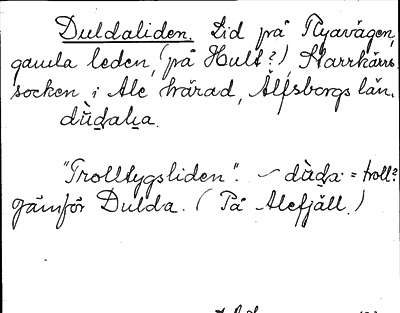 Duldaliden. Lid på Nyavägen,
gamla leden, (på Hult?) Starrkärrs
socken i Ale härad, Älfsborgs län.
dùḏaḻa.
"Trolltygsliden". – dùḏa = troll?
Jämför Dulda. (På Alefjäll.)